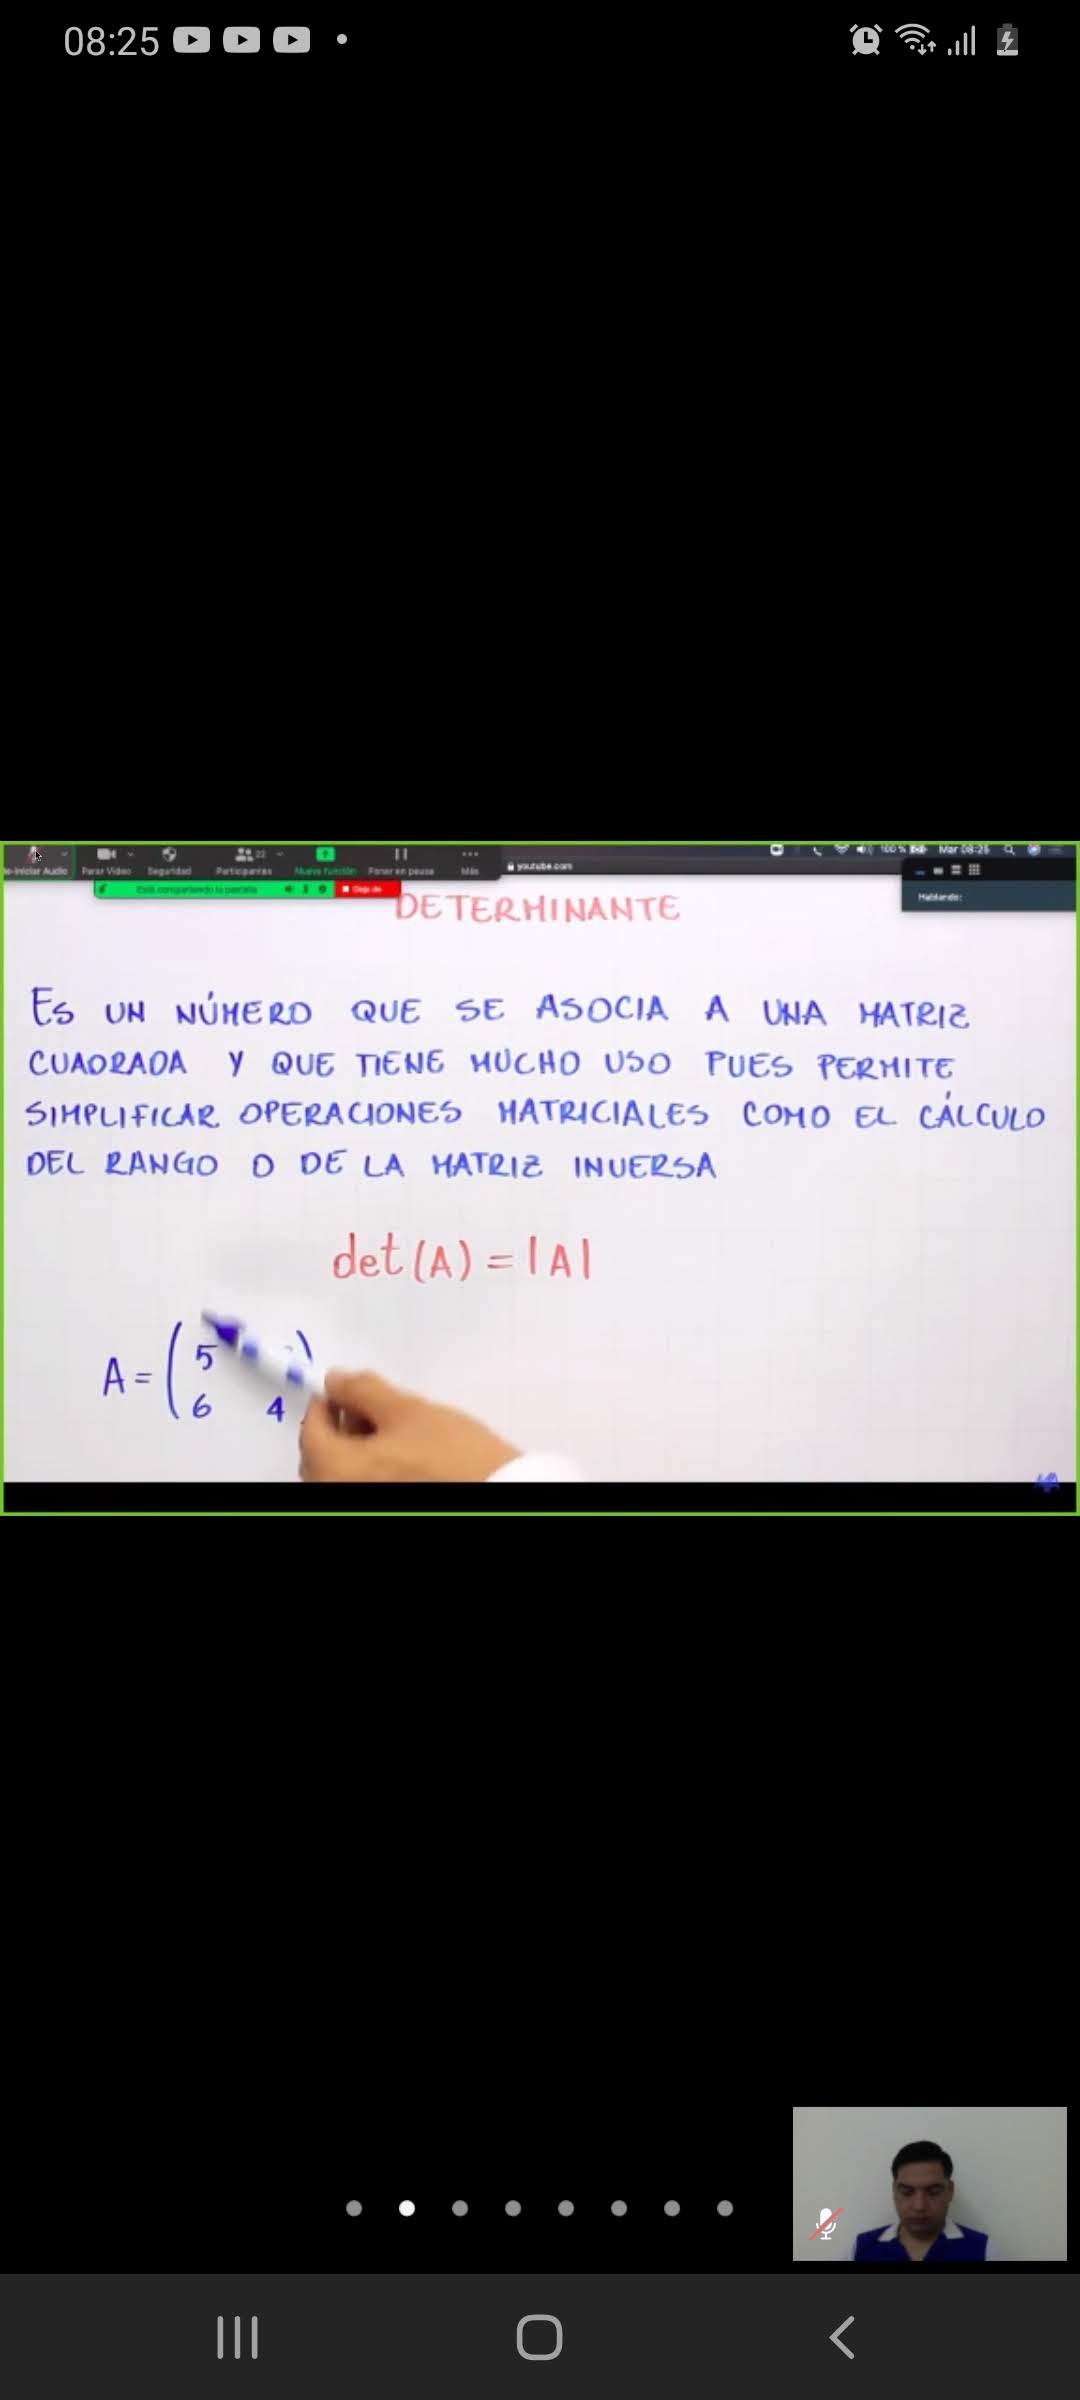 08:25
Parar Video
Seguridad
Participantes
22
Nueva función
Poner en pausa
Más
youtube.com
100 %
Mar 08:25
Está compartiendo la pantalla
Deja de
Hablando:
DETERMINANTE
ES UN NÚMERO QUE SE ASOCIA A UNA MATRIZ
CUADRADA Y QUE TIENE MUCHO USO PUES PERMITE
SIMPLIFICAR OPERACIONES MATRICIALES COMO EL CÁLCULO
DEL RANGO O DE LA MATRIZ INVERSA
det (A) = |A|
A = ( 5 )
6 4